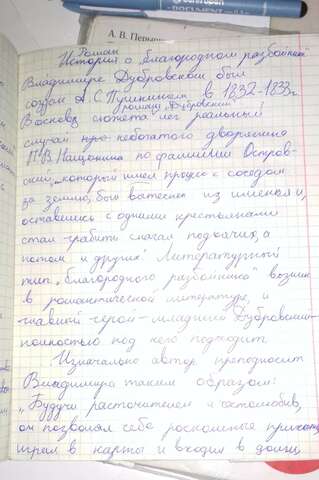 DOCUMENT
А. В. Перыш
Роман
История о „благородном разбойнике"
Владимире Дубровском был
создан А.С. Пушкиным в 1832-1833г.
В основу сюжета романа „Дубровский" лег реальный
случай про небогатого дворянина
П.В. Нащокина по фамилии Остров-
ский, „который имел процесс с соседом
за землю, был вытеснен из именья и,
оставшись с одними крестьянами
стал грабить сначала подьячих, а
потом и других". Литературный
тип „благородного разбойника" возник
в романтической литературе, и
главный герой - младший Дубровский -
полностью под него подходит
Изначально автор преподносит
Владимира таким образом:
„Будучи расточителен и честолюбив,
он позволял себе роскошные прихоти,
играл в карты и входил в долги,